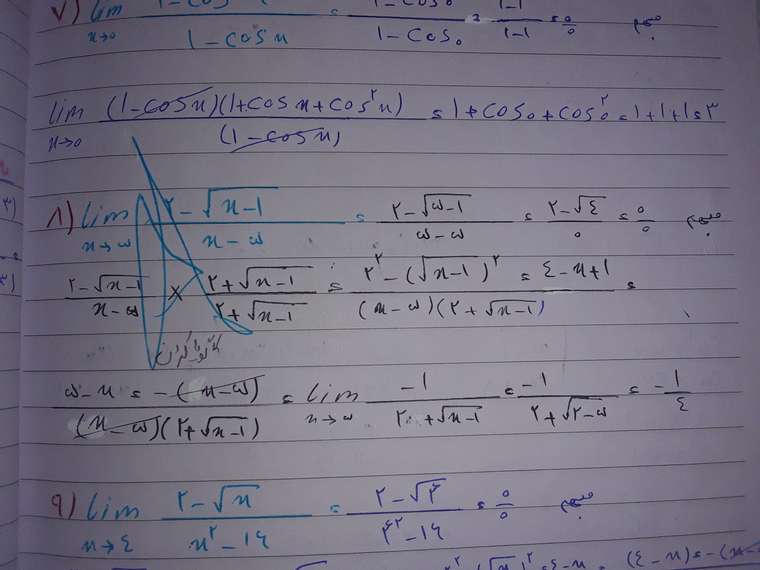 ۷) lim x→0 1-cos x / 1-cos x = 1-cos0 / 1-cos0 = 1-1 / 1-1 = 0/0 مبهم
lim x→0 (1-cosx)(1+cosx+cos²x) / (1-cosx) = 1+cos0+cos²0 = 1+1+1 = ۳
۸) lim x→۵ ۲-√x-1 / x-۵ = ۲-√۵-1 / ۵-۵ = ۲-√٤ / 0 = 0/0 مبهم
۲-√x-1 / x-۵ × ۲+√x-1 / ۲+√x-1 = ۲²-(√x-1)² = ٤-x+1 / (x-۵)(۲+√x-1) =
گویا کردن
۵-x = -(x-۵) / (x-۵)(۲+√x-1) = lim x→۵ -1 / ۲+√x-1 = -1 / ۲+√۲-۵ = -1/٤
۹) lim x→٤ ۲-√x / x²-1۶ = ۲-√۴ / ۴²-1۶ = 0/0 مبهم